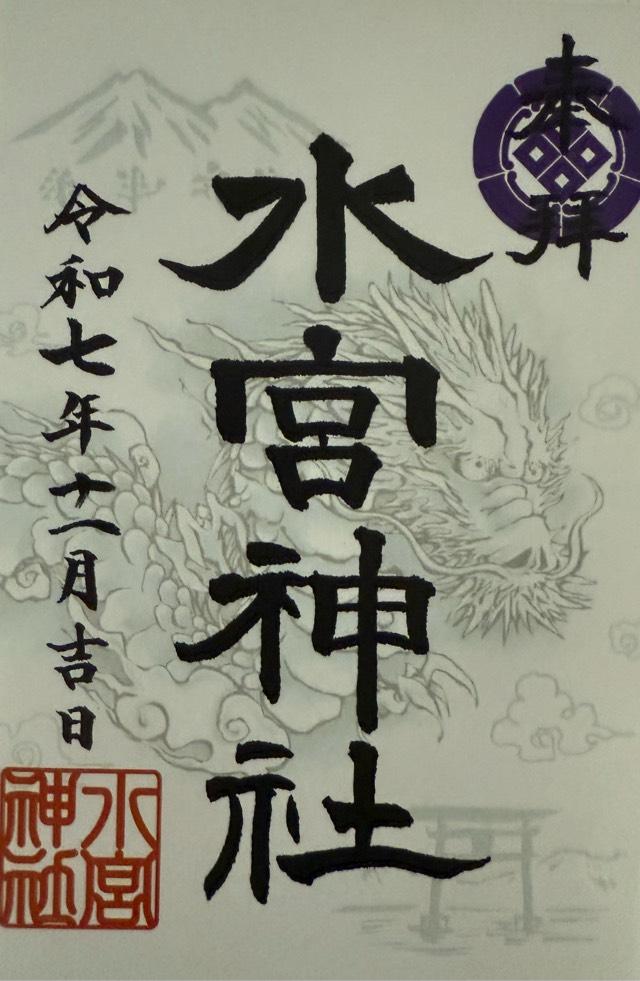 奉拝
水宮神社
令和七年十一月吉日
水宮
神社